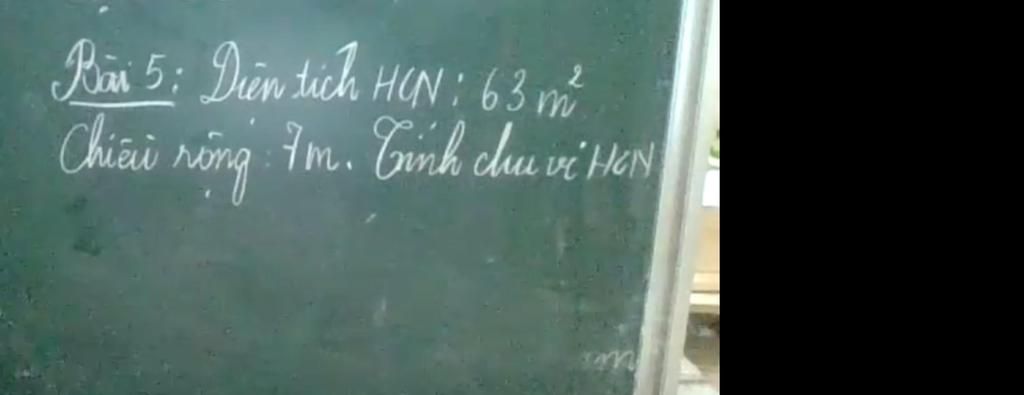 Bài 5: Diện tích HCN: 63 m²
Chiều rộng: 7m. Tính chu vi HCN